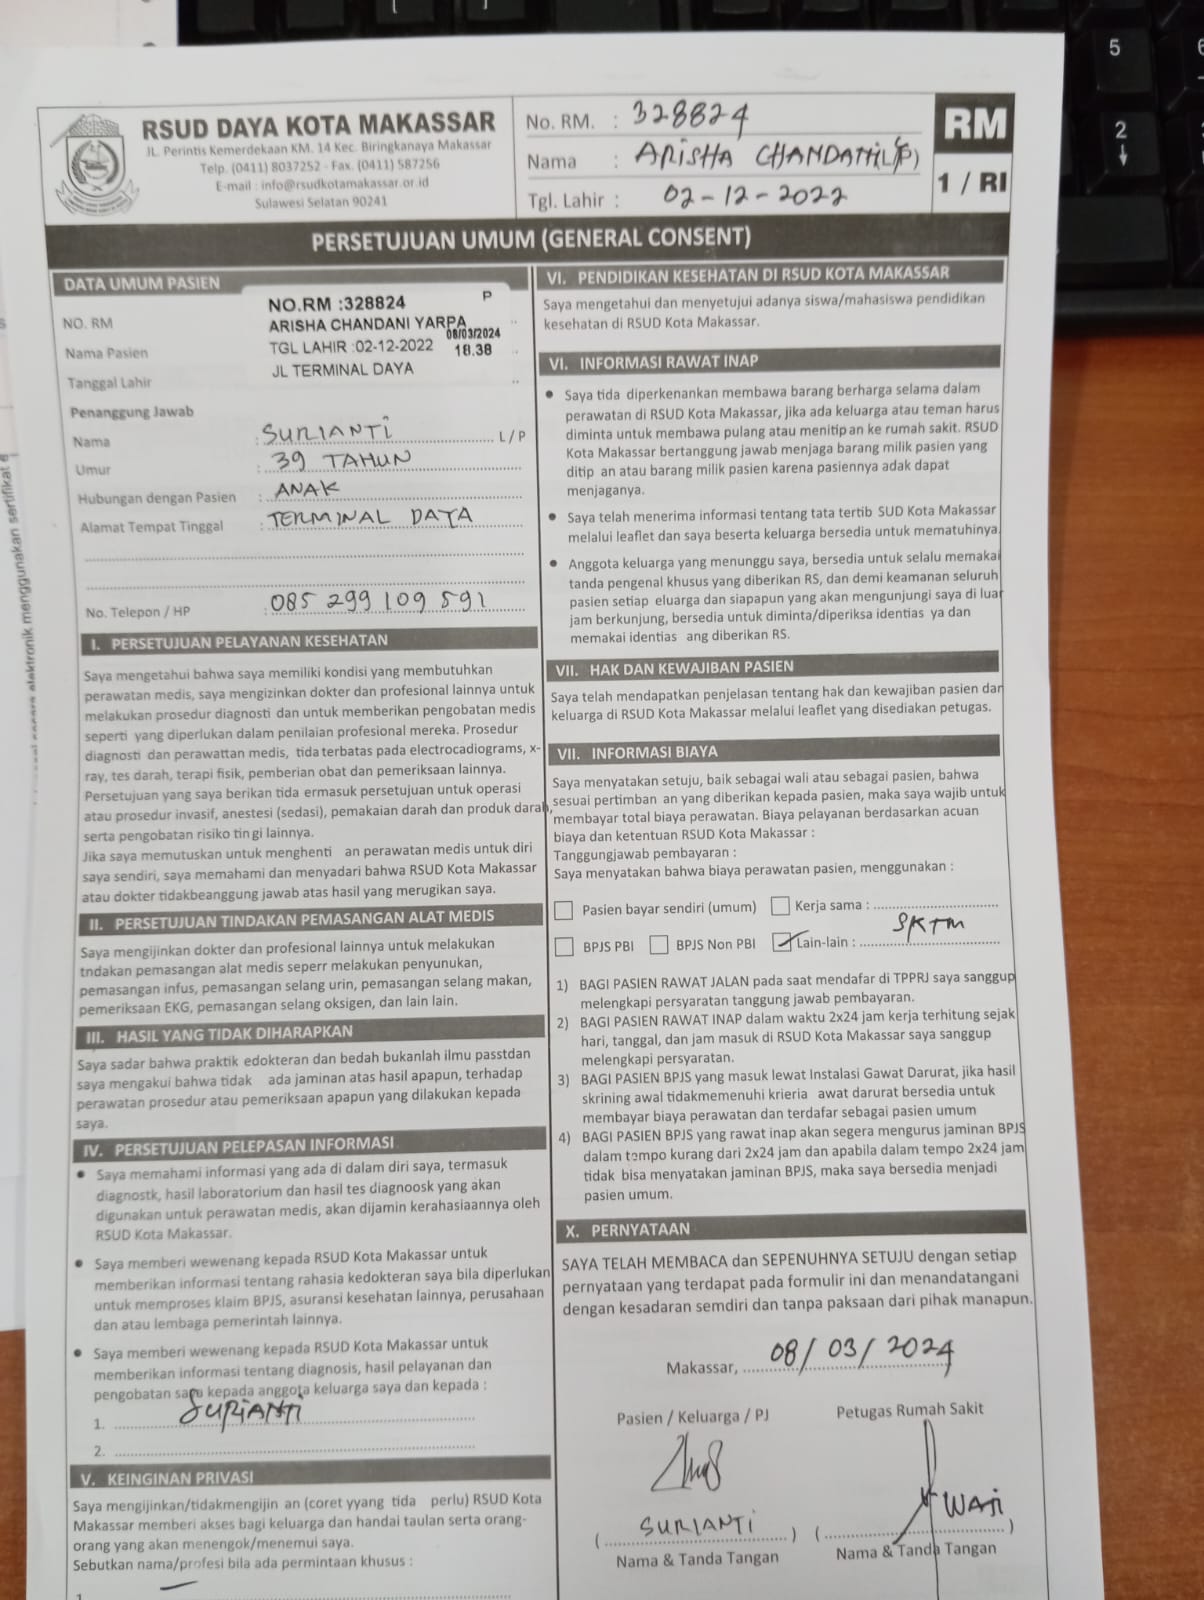 RSUD DAYA KOTA MAKASSAR
JL. Perintis Kemerdekaan KM. 14 Kec. Biringkanaya Makassar
Telp. (0411) 8037252 - Fax. (0411) 587256
E-mail : info@rsudkotamakassar.or.id
Sulawesi Selatan 90241
No. RM. : 328824
Nama : ARISHA CHANDANI (P)
Tgl. Lahir : 02-12-2022
RM
1 / RI
PERSETUJUAN UMUM (GENERAL CONSENT)
DATA UMUM PASIEN
NO. RM
Nama Pasien
Tanggal Lahir
NO.RM :328824 P
ARISHA CHANDANI YARPA
08/03/2024
TGL LAHIR :02-12-2022 18.38
JL TERMINAL DAYA
Penanggung Jawab
Nama : SURIANTI L / P
Umur : 39 TAHUN
Hubungan dengan Pasien : ANAK
Alamat Tempat Tinggal : TERMINAL DAYA
No. Telepon / HP : 085 299 109 591
I. PERSETUJUAN PELAYANAN KESEHATAN
Saya mengetahui bahwa saya memiliki kondisi yang membutuhkan
perawatan medis, saya mengizinkan dokter dan profesional lainnya untuk
melakukan prosedur diagnosti dan untuk memberikan pengobatan medis
seperti yang diperlukan dalam penilaian profesional mereka. Prosedur
diagnosti dan perawattan medis, tida terbatas pada electrocadiograms, x-
ray, tes darah, terapi fisik, pemberian obat dan pemeriksaan lainnya.
Persetujuan yang saya berikan tida ermasuk persetujuan untuk operasi
atau prosedur invasif, anestesi (sedasi), pemakaian darah dan produk darah,
serta pengobatan risiko tin gi lainnya.
Jika saya memutuskan untuk menghenti an perawatan medis untuk diri
saya sendiri, saya memahami dan menyadari bahwa RSUD Kota Makassar
atau dokter tidakbeanggung jawab atas hasil yang merugikan saya.
II. PERSETUJUAN TINDAKAN PEMASANGAN ALAT MEDIS
Saya mengijinkan dokter dan profesional lainnya untuk melakukan
tndakan pemasangan alat medis seperr melakukan penyunukan,
pemasangan infus, pemasangan selang urin, pemasangan selang makan,
pemeriksaan EKG, pemasangan selang oksigen, dan lain lain.
III. HASIL YANG TIDAK DIHARAPKAN
Saya sadar bahwa praktik edokteran dan bedah bukanlah ilmu passtdan
saya mengakui bahwa tidak ada jaminan atas hasil apapun, terhadap
perawatan prosedur atau pemeriksaan apapun yang dilakukan kepada
saya.
IV. PERSETUJUAN PELEPASAN INFORMASI
• Saya memahami informasi yang ada di dalam diri saya, termasuk
diagnostk, hasil laboratorium dan hasil tes diagnoosk yang akan
digunakan untuk perawatan medis, akan dijamin kerahasiaannya oleh
RSUD Kota Makassar.
• Saya memberi wewenang kepada RSUD Kota Makassar untuk
memberikan informasi tentang rahasia kedokteran saya bila diperlukan
untuk memproses klaim BPJS, asuransi kesehatan lainnya, perusahaan
dan atau lembaga pemerintah lainnya.
• Saya memberi wewenang kepada RSUD Kota Makassar untuk
memberikan informasi tentang diagnosis, hasil pelayanan dan
pengobatan saya kepada anggota keluarga saya dan kepada :
1. SURIANTI
2.
V. KEINGINAN PRIVASI
Saya mengijinkan/tidakmengijin an (coret yyang tida perlu) RSUD Kota
Makassar memberi akses bagi keluarga dan handai taulan serta orang-
orang yang akan menengok/menemui saya.
Sebutkan nama/profesi bila ada permintaan khusus :
1
VI. PENDIDIKAN KESEHATAN DI RSUD KOTA MAKASSAR
Saya mengetahui dan menyetujui adanya siswa/mahasiswa pendidikan
kesehatan di RSUD Kota Makassar.
VI. INFORMASI RAWAT INAP
• Saya tida diperkenankan membawa barang berharga selama dalam
perawatan di RSUD Kota Makassar, jika ada keluarga atau teman harus
diminta untuk membawa pulang atau menitip an ke rumah sakit. RSUD
Kota Makassar bertanggung jawab menjaga barang milik pasien yang
ditip an atau barang milik pasien karena pasiennya adak dapat
menjaganya.
• Saya telah menerima informasi tentang tata tertib SUD Kota Makassar
melalui leaflet dan saya beserta keluarga bersedia untuk mematuhinya.
• Anggota keluarga yang menunggu saya, bersedia untuk selalu memakai
tanda pengenal khusus yang diberikan RS, dan demi keamanan seluruh
pasien setiap eluarga dan siapapun yang akan mengunjungi saya di luar
jam berkunjung, bersedia untuk diminta/diperiksa identias ya dan
memakai identias ang diberikan RS.
VII. HAK DAN KEWAJIBAN PASIEN
Saya telah mendapatkan penjelasan tentang hak dan kewajiban pasien dan
keluarga di RSUD Kota Makassar melalui leaflet yang disediakan petugas.
VII. INFORMASI BIAYA
Saya menyatakan setuju, baik sebagai wali atau sebagai pasien, bahwa
sesuai pertimban an yang diberikan kepada pasien, maka saya wajib untuk
membayar total biaya perawatan. Biaya pelayanan berdasarkan acuan
biaya dan ketentuan RSUD Kota Makassar :
Tanggungjawab pembayaran :
Saya menyatakan bahwa biaya perawatan pasien, menggunakan :
Pasien bayar sendiri (umum) Kerja sama :
BPJS PBI BPJS Non PBI Lain-lain : SKTM
1) BAGI PASIEN RAWAT JALAN pada saat mendafar di TPPRJ saya sanggup
melengkapi persyaratan tanggung jawab pembayaran.
2) BAGI PASIEN RAWAT INAP dalam waktu 2x24 jam kerja terhitung sejak
hari, tanggal, dan jam masuk di RSUD Kota Makassar saya sanggup
melengkapi persyaratan.
3) BAGI PASIEN BPJS yang masuk lewat Instalasi Gawat Darurat, jika hasil
skrining awal tidakmemenuhi krieria awat darurat bersedia untuk
membayar biaya perawatan dan terdafar sebagai pasien umum
4) BAGI PASIEN BPJS yang rawat inap akan segera mengurus jaminan BPJS
dalam tempo kurang dari 2x24 jam dan apabila dalam tempo 2x24 jam
tidak bisa menyatakan jaminan BPJS, maka saya bersedia menjadi
pasien umum.
X. PERNYATAAN
SAYA TELAH MEMBACA dan SEPENUHNYA SETUJU dengan setiap
pernyataan yang terdapat pada formulir ini dan menandatangani
dengan kesadaran semdiri dan tanpa paksaan dari pihak manapun.
Makassar, 08/03/2024
Pasien / Keluarga / PJ Petugas Rumah Sakit
( SURIANTI ) ( WATI )
Nama & Tanda Tangan Nama & Tanda Tangan
5
6
2
menggunakan sertifikat